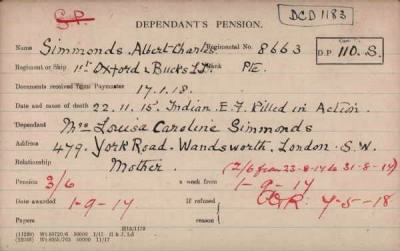 S.P.
DEPENDANT'S PENSION.
DCD 1183
Name Simmonds Albert Charles Regimental No. 8663
Regiment or Ship 1st Oxford & Bucks L.I. Rank PTE. D.P. 110. S.
Documents received from Paymaster 17.1.18.
Date and cause of death 22.11.15. Indian E.F. Killed in Action.
Dependant Mrs Louisa Caroline Simmonds
Address 479. York Road. Wandsworth. London. S.W.
Relationship Mother. (2/6 from 23-8-17 to 31-8-17)
Pension 3/6 a week from 1-9-17
Date awarded 1-9-17 If refused 7-5-18
Papers reason